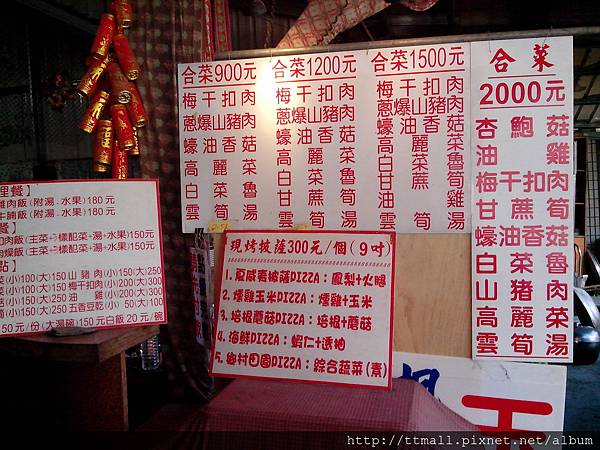 合菜900元
梅干扣肉
蔥爆山豬肉
蠔油香菇
高麗菜
白菜魯
甘蔗筍
雲湯
合菜1200元
梅干扣肉
蔥爆山豬肉
蠔油香菇
高麗菜
白菜魯
甘蔗筍
雲湯
合菜1500元
梅干扣肉
蔥爆山豬肉
蠔油香菇
高麗菜
白菜魯
甘蔗筍
油雞
雲湯
合菜
2000元
杏鮑菇
油雞
梅干扣肉
甘蔗筍
蠔油香菇
白菜魯
山豬肉
高麗菜
雲筍湯
理餐】
雞肉飯(附湯、水果)180元
牛腩飯(附湯、水果)180元
餐】
扣肉飯(主菜+樣配菜+湯+水果)150元
肉燥飯(主菜+樣配菜+湯+水果)150元
點】
菜(小)100(大)150 山豬肉(小)150(大)250
菜(小)100(大)150 梅干扣肉(小)150(大)250
菇(小)100(大)150 油雞(小)200(大)300
筍(小)150(大)250 五香豆乾(小)50(大)100
50元/份(大湯碗)150元 白飯20元/碗
現烤披薩300元/個(9吋)
1.夏威夷披薩PIZZA：鳳梨+火腿
2.燻雞玉米PIZZA：燻雞+玉米
3.培根蘑菇PIZZA：培根+蘑菇
4.海鮮PIZZA：蝦仁+透抽
5.鄉村田園PIZZA：綜合蔬菜(素)
http://ttmall.pixnet.net/album